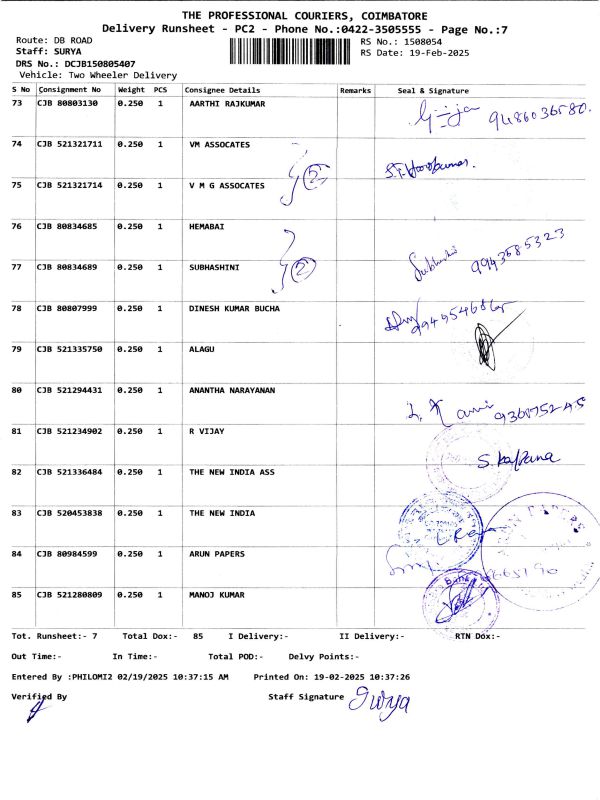 THE PROFESSIONAL COURIERS, COIMBATORE
Delivery Runsheet - PC2 - Phone No.:0422-3505555 - Page No.:7
Route: DB ROAD RS No.: 1508054
Staff: SURYA RS Date: 19-Feb-2025
DRS No.: DCJB150805407
Vehicle: Two Wheeler Delivery
S No Consignment No Weight PCS Consignee Details Remarks Seal & Signature
73 CJB 80803130 0.250 1 AARTHI RAJKUMAR 9486036580.
74 CJB 521321711 0.250 1 VM ASSOCATES
2
75 CJB 521321714 0.250 1 V M G ASSOCATES
76 CJB 80834685 0.250 1 HEMABAI
2 9943585323
77 CJB 80834689 0.250 1 SUBHASHINI
78 CJB 80807999 0.250 1 DINESH KUMAR BUCHA
79 CJB 521335750 0.250 1 ALAGU
80 CJB 521294431 0.250 1 ANANTHA NARAYANAN
81 CJB 521234902 0.250 1 R VIJAY
S. Kalpana
82 CJB 521336484 0.250 1 THE NEW INDIA ASS
83 CJB 520453838 0.250 1 THE NEW INDIA
84 CJB 80984599 0.250 1 ARUN PAPERS
85 CJB 521280809 0.250 1 MANOJ KUMAR
Tot. Runsheet:- 7 Total Dox:- 85 I Delivery:- II Delivery:- RTN Dox:-
Out Time:- In Time:- Total POD:- Delvy Points:-
Entered By :PHILOMI2 02/19/2025 10:37:15 AM Printed On: 19-02-2025 10:37:26
Verified By Staff Signature Surya